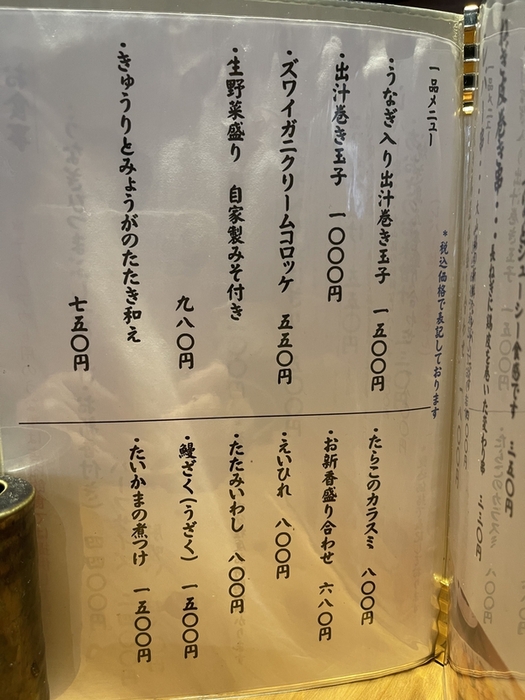 一品メニュー
＊税込価格で表記しております
・うなぎ入り出汁巻き玉子 一五〇〇円
・出汁巻き玉子 一〇〇〇円
・ズワイガニクリームコロッケ 五五〇円
・生野菜盛り 自家製みそ付き
九八〇円
・きゅうりとみょうがのたたき和え
七五〇円
・たらこのカラスミ 八〇〇円
・お新香盛り合わせ 六八〇円
・えいひれ 八〇〇円
・たたみいわし 八〇〇円
・鰻ざく(うざく) 一五〇〇円
・たいかまの煮つけ 一五〇〇円